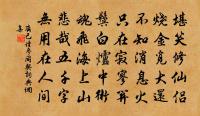 堪笑修仙侶
燒金覓大還
不知消息火
只在寂寥關
鬢白爐中術
魂飛海上山
悲哉五千字
無用在人間